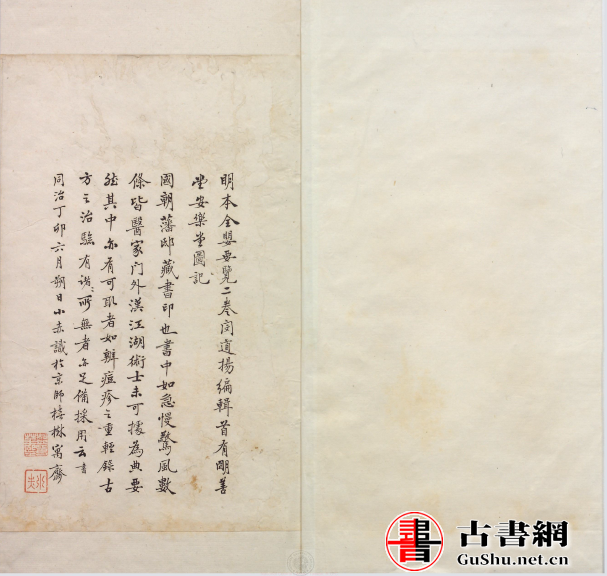 明本全嬰要覽二卷閔道揚編輯首有明善
堂安樂堂圖記
國朝藩邸藏書印也書中如急慢驚風數
條皆醫家門外漢江湖術士未可據為典要
然其中亦有可取者如辨痘疹之重輕錄古
方之治驗有諸所無者亦足備採用云
同治丁卯六月朔日小赤識於京師椿樹寓齋
書
古書網
GuShu.net.cn